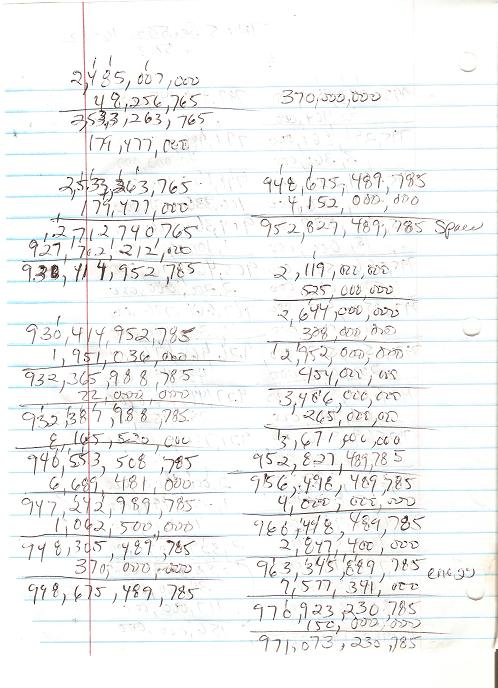 2,485,007,000
48,256,765
2,533,263,765.
179,477,000
2,533,263,765
179,477,000
2,712,740,765
927,702,212,000
930,414,952,785
930,414,952,785
1,951,036,000
932,365,988,785
22,000,000
932,387,988,785.
8,165,520,000
940,553,508,785
6,689,481,000
947,242,989,785
1,062,500,000
948,305,489,785
370,000,000
948,675,489,785
370,000,000
948,675,489,785
4,152,000,000
952,827,489,785 Space
2,119,000,000
525,000,000
2,644,000,000
308,000,000
2,952,000,000
454,000,000
3,406,000,000
265,000,000
3,671,000,000
952,827,489,785
956,498,489,785
4,000,000,000
960,498,489,785
2,847,400,000
963,345,889,785 energy
7,577,341,000
970,923,230,785
150,000,000
971,073,230,785